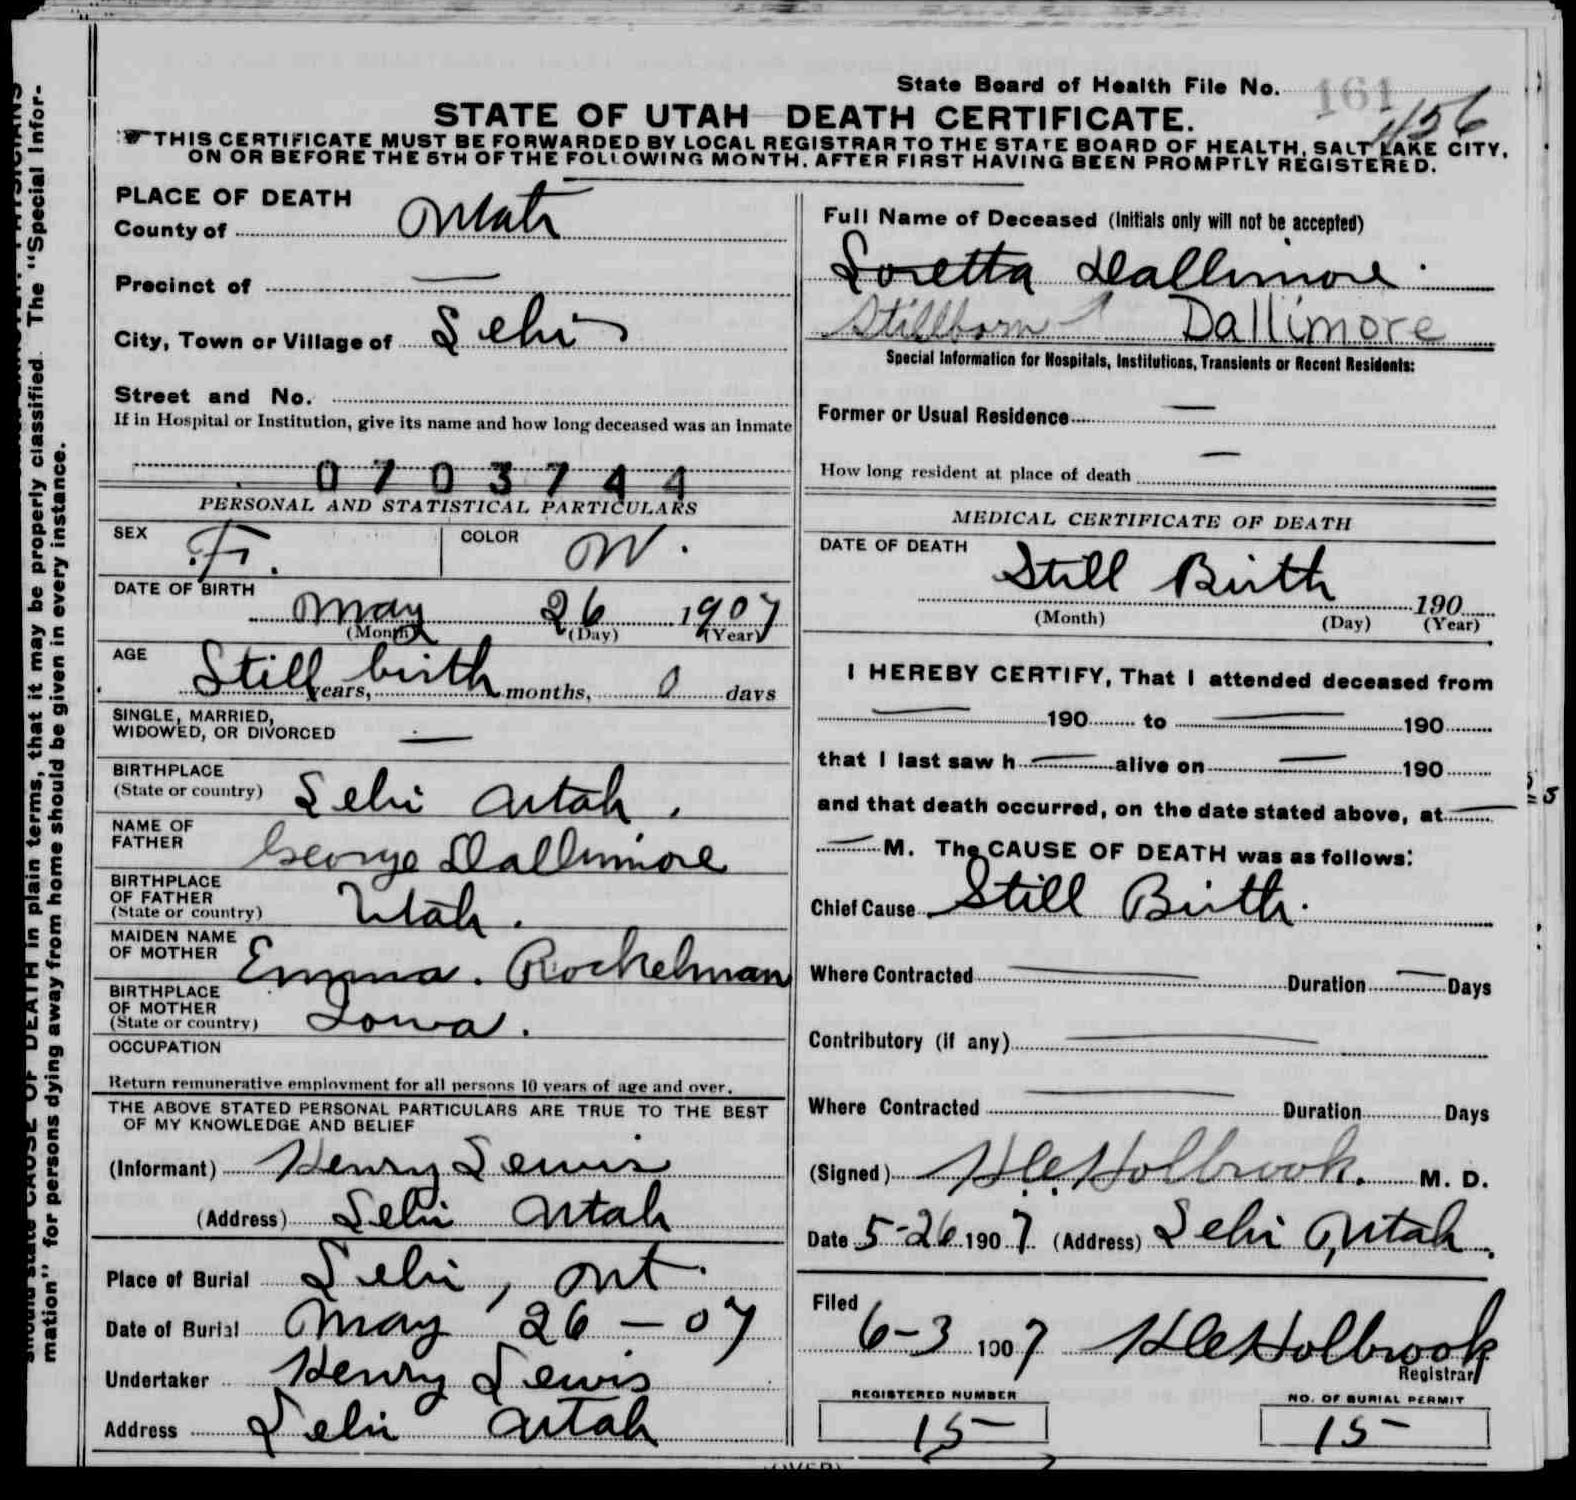 State Board of Health File No. 161
1156
STATE OF UTAH DEATH CERTIFICATE.
THIS CERTIFICATE MUST BE FORWARDED BY LOCAL REGISTRAR TO THE STATE BOARD OF HEALTH, SALT LAKE CITY,
ON OR BEFORE THE 5TH OF THE FOLLOWING MONTH, AFTER FIRST HAVING BEEN PROMPTLY REGISTERED.
PLACE OF DEATH
County of Utah
Precinct of —
City, Town or Village of Lehi
Street and No.
If in Hospital or Institution, give its name and how long deceased was an inmate
0703744
PERSONAL AND STATISTICAL PARTICULARS
SEX F. COLOR W.
DATE OF BIRTH
May 26 1907
(Month) (Day) (Year)
AGE
Still birth years, months, 0 days
SINGLE, MARRIED,
WIDOWED, OR DIVORCED —
BIRTHPLACE
(State or country) Lehi Utah.
NAME OF
FATHER George Dallimore
BIRTHPLACE
OF FATHER
(State or country) Utah.
MAIDEN NAME
OF MOTHER Emma. Rockelman
BIRTHPLACE
OF MOTHER
(State or country) Iowa.
OCCUPATION
Return remunerative employment for all persons 10 years of age and over.
THE ABOVE STATED PERSONAL PARTICULARS ARE TRUE TO THE BEST
OF MY KNOWLEDGE AND BELIEF
(Informant) Henry Lewis
(Address) Lehi Utah
Place of Burial Lehi, Ut.
Date of Burial May 26 - 07
Undertaker Henry Lewis
Address Lehi Utah
Full Name of Deceased (Initials only will not be accepted)
Loretta Dallimore.
Stillborn Dallimore
Special Information for Hospitals, Institutions, Transients or Recent Residents:
Former or Usual Residence —
How long resident at place of death —
MEDICAL CERTIFICATE OF DEATH
DATE OF DEATH
Still Birth 190
(Month) (Day) (Year)
I HEREBY CERTIFY, That I attended deceased from
— 190 to — 190
that I last saw h — alive on — 190
and that death occurred, on the date stated above, at —
— M. The CAUSE OF DEATH was as follows:
Chief Cause Still Birth.
Where Contracted — Duration — Days
Contributory (if any) —
Where Contracted — Duration Days
(Signed) Holbrook. M. D.
Date 5-26 1907 (Address) Lehi, Utah.
Filed
6-3 1907 Holbrook
Registrar
REGISTERED NUMBER
15
NO. OF BURIAL PERMIT
15
(OVER)
should state CAUSE OF DEATH in plain terms, that it may be properly classified. The "Special Infor-
mation" for persons dying away from home should be given in every instance.